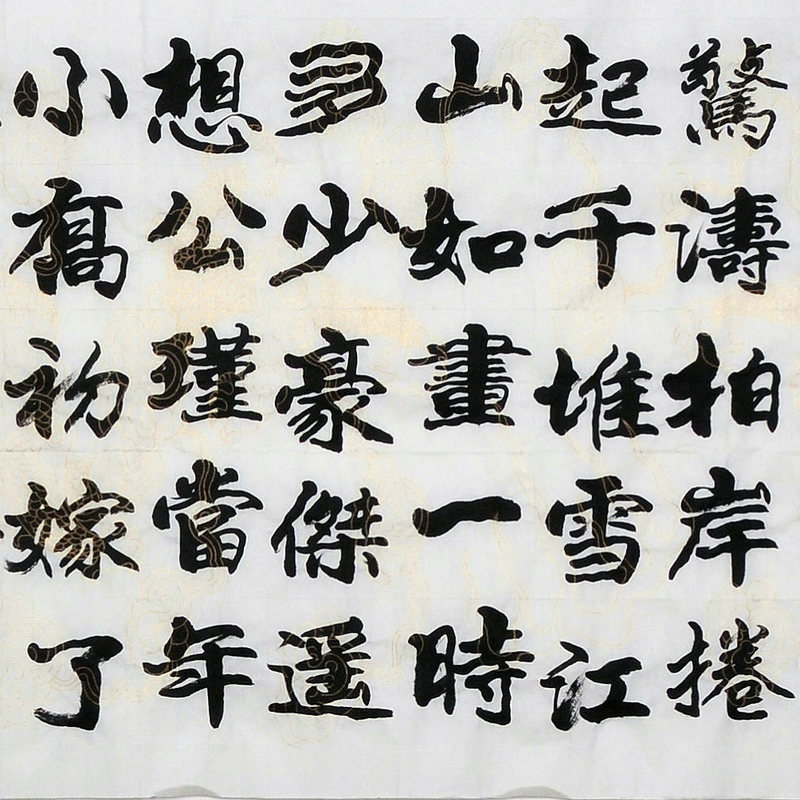 驚濤拍岸捲
起千堆雪江
山如畫一時
多少豪傑遥
想公瑾當年
小喬初嫁了